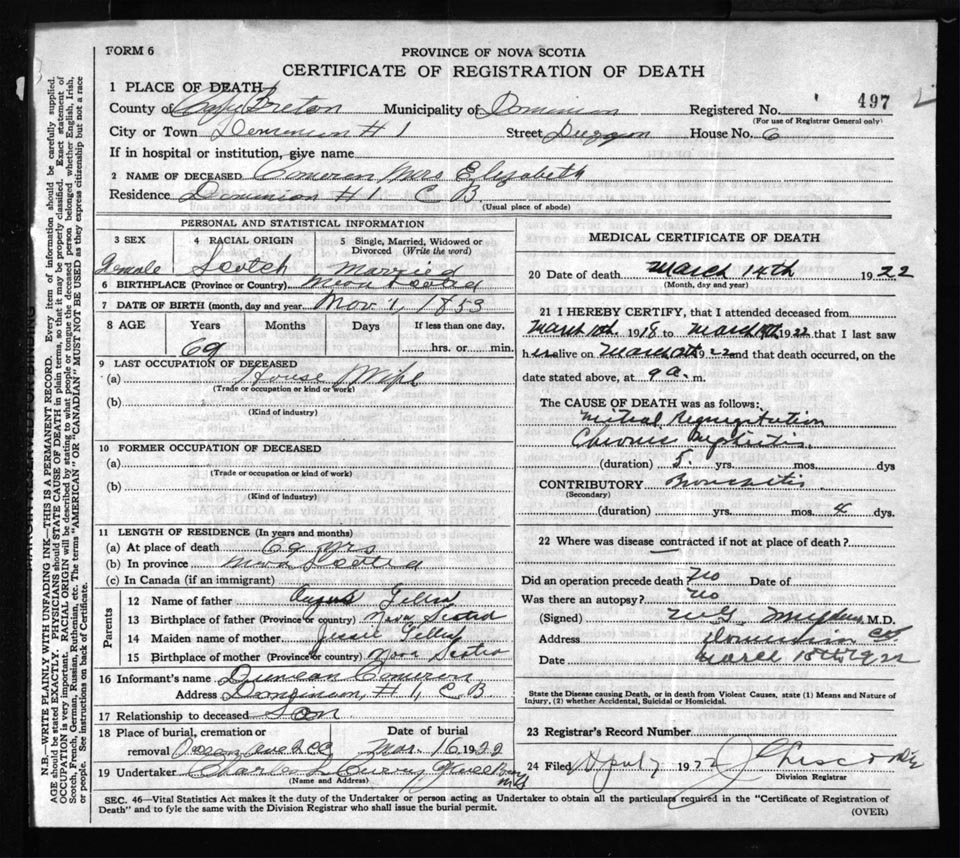 FORM 6
PROVINCE OF NOVA SCOTIA
CERTIFICATE OF REGISTRATION OF DEATH
1 PLACE OF DEATH
County of Cape Breton Municipality of Dominion Registered No. 497
(For use of Registrar General only)
City or Town Dominion # 1 Street Duggan House No. 6
If in hospital or institution, give name
2 NAME OF DECEASED Cameron Mrs Elizabeth
Residence Dominion # 1 C B
(Usual place of abode)
PERSONAL AND STATISTICAL INFORMATION
3 SEX 4 RACIAL ORIGIN 5 Single, Married, Widowed or
Divorced (Write the word)
Female Scotch Married
6 BIRTHPLACE (Province or Country) Nova Scotia
7 DATE OF BIRTH (month, day and year Nov. 1, 1853
8 AGE Years Months Days If less than one day,
69 hrs. or min.
9 LAST OCCUPATION OF DECEASED
(a) House Wife
(Trade or occupation or kind or work)
(b)
(Kind of industry)
10 FORMER OCCUPATION OF DECEASED
(a)
(Trade or occupation or kind of work)
(b)
(Kind of industry)
11 LENGTH OF RESIDENCE (In years and months)
(a) At place of death 69 yrs
(b) In province Nova Scotia
(c) In Canada (if an immigrant)
Parents
12 Name of father Angus Gillis
13 Birthplace of father (Province or country) Nova Scotia
14 Maiden name of mother Jessie Gillis
15 Birthplace of mother (Province or country) Nova Scotia
16 Informant's name Duncan Cameron
Address Dominion, # 1, C B
17 Relationship to deceased Son
18 Place of burial, cremation or Date of burial
removal Mar. 16 1922
19 Undertaker Charles L. Curry
(Name and Address)
MEDICAL CERTIFICATE OF DEATH
20 Date of death March 14th 1922
(Month, day and year)
21 I HEREBY CERTIFY, that I attended deceased from
March 10th 1918 to March 14th 1922 that I last saw
her alive on March 1922 and that death occurred, on the
date stated above, at 9 a. m.
The CAUSE OF DEATH was as follows:
Mitral Regurgitation
Chronic Nephritis
(duration) 5 yrs. mos. dys
CONTRIBUTORY Bronchitis
(Secondary)
(duration) yrs. mos. 4 dys.
22 Where was disease contracted if not at place of death?
Did an operation precede death No Date of
Was there an autopsy? No
(Signed) M.D.
Address Dominion CB
Date March 1922
State the Disease causing Death, or in death from Violent Causes, state (1) Means and Nature of
Injury, (2) whether Accidental, Suicidal or Homicidal.
23 Registrar's Record Number
24 Filed 192
Division Registrar
SEC. 46—Vital Statistics Act makes it the duty of the Undertaker or person acting as Undertaker to obtain all the particulars required in the "Certificate of Registration of
Death" and to fyle the same with the Division Registrar who shall issue the burial permit.
(OVER)
N.B.—WRITE PLAINLY WITH UNFADING INK—THIS IS A PERMANENT RECORD. Every item of information should be carefully supplied.
AGE should be stated EXACTLY. PHYSICIANS should STATE CAUSE OF DEATH in plain terms, so that it may be properly classified. Exact statement of
OCCUPATION is very important. RACIAL ORIGIN will be described by stating to what people or tongue the deceased person belonged whether English, Irish,
Scotch, French, German, Russian, Ruthenian, etc. The terms "AMERICAN" OR "CANADIAN" MUST NOT BE USED as they express citizenship but not a race
or people. See instructions on back of Certificate.